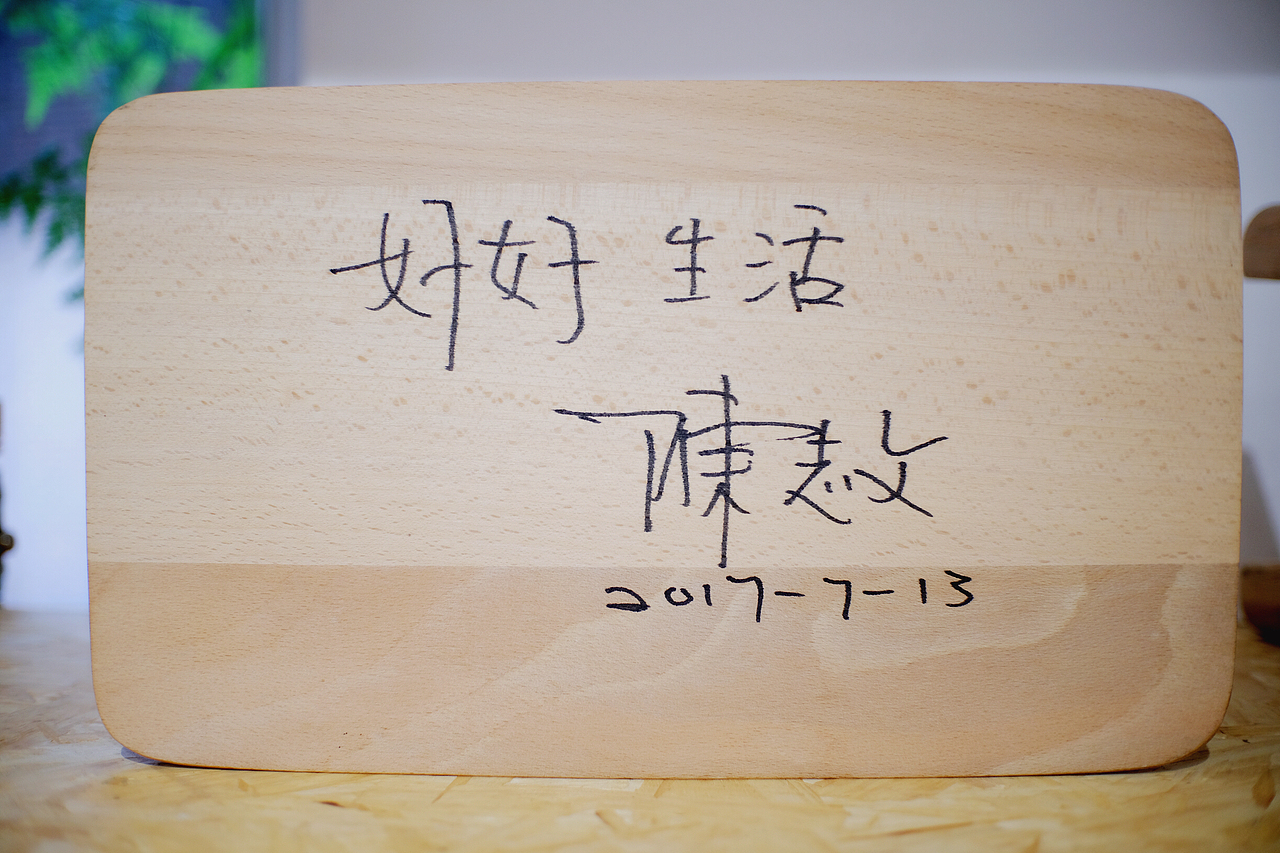 好好 生活
陳
2017-7-13